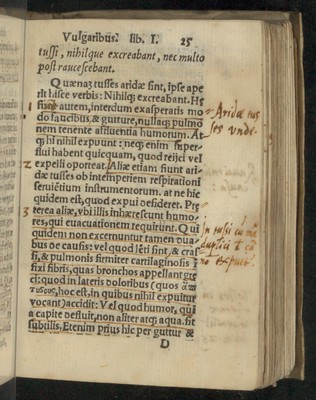 Vulgaribus. lib. I. 25
tussi, nihilque excreabant, nec multo
post raucescebant.
Quænaʒ tusses aridæ sint, ipse ape
rit hisce verbis: Nihilqꝫ excreabant. Hę
autem, interdum exasperatis mo
do faucibus, & gutture, nullaqꝫ pulmo
nem tenente affluentia humorum. At
qꝫ hi nihil expuunt: neqꝫ enim super-
flui habent quicquam, quod reijci vel
expelli oporteat. Aliæ etiam fiunt ari
dæ tusses ob intemperiem respirationi
seruiētium instrumentorum. at ne hic
quidem est, quod expui desideret. Pre
terea aliæ, vbi illis inhærescunt humo-
res, qui euacuationem requirunt. Qui
quidem non excernuntur tamen dua-
bus de causis: vel quod lēti sint, & cras
si, & pulmonis firmiter cartilaginosis
fixi fibris, quas bronchos appellant gre
ci: quod in lateris doloribus (quos
hoc est, in quibus nihil expuitur
vocant) accidit: Vel quod humor, qui
a capite defluit, non aliter atqꝫ aqua. sit
subtilis. Etenim prius hic per guttur &
D
1
2
3
Aridæ tus
ses vnde.